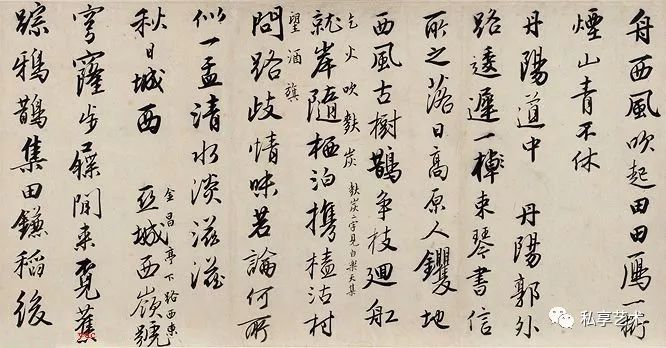 舟西風吹起田田雁一
煙山青不休
丹陽道中 丹陽郭外
路逶遲一棹東琴書信
所之落日高原人钁地
西風古樹鵲爭枝廻舡
乞火吹麩炭 麩炭二字見白樂天集
就岸隨栖泊携榼沽村
望酒旗
問路歧情味若論何所
似一盂清水淡滋滋
秋日城西 金昌亭下路西東
亞城西嶺號
穹窿步屧閒來覓舊
踪鴉鵲集田鎌稻後
私享艺术